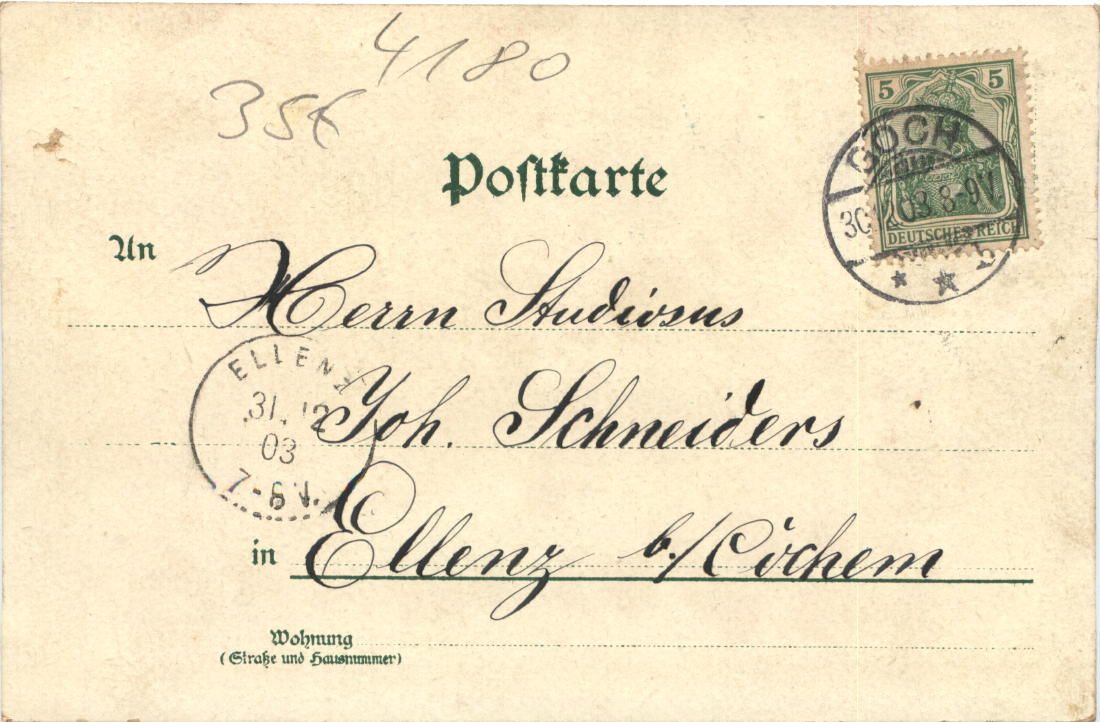 4180
35€
Postkarte
5 5
GOCH
03 8-9V
DEUTSCHES REICH
An
Herrn Studiosus
ELLENZ
31.12
03
Joh. Schneiders
in Ellenz b./Cochem
Wohnung
(Straße und Hausnummer)